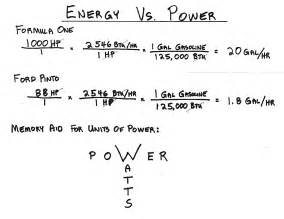 ENERGY VS. POWER
FORMULA ONE
1000 HP / 1 × 2546 BTU/HR / 1 HP × 1 GAL GASOLINE / 125,000 BTU = 20 GAL/HR
FORD PINTO
88 HP / 1 × 2546 BTU/HR / 1 HP × 1 GAL GASOLINE / 125,000 BTU = 1.8 GAL/HR
MEMORY AID FOR UNITS OF POWER:
POWER
WATTS